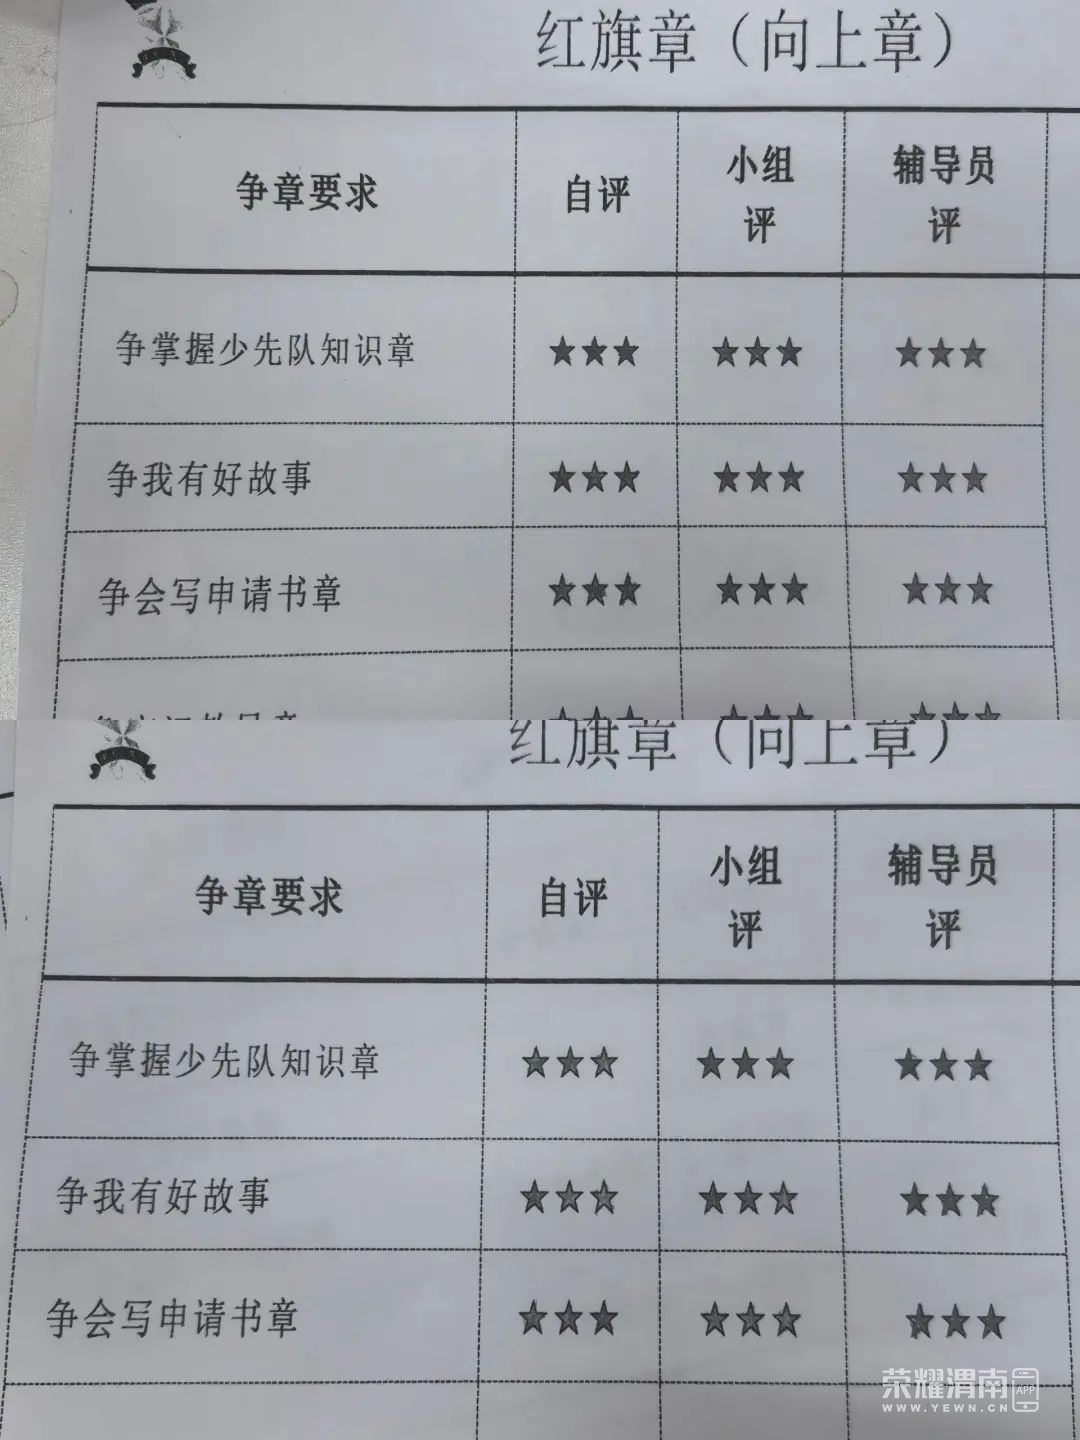 红旗章（向上章）
争章要求 自评 小组评 辅导员评
争掌握少先队知识章 ★★★ ★★★ ★★★
争我有好故事 ★★★ ★★★ ★★★
争会写申请书章 ★★★ ★★★ ★★★
★★★ ★★★ ★★★
红旗章（向上章）
争章要求 自评 小组评 辅导员评
争掌握少先队知识章 ★★★ ★★★ ★★★
争我有好故事 ★★★ ★★★ ★★★
争会写申请书章 ★★★ ★★★ ★★★
荣耀渭南 APP
WWW.YEWN.CN